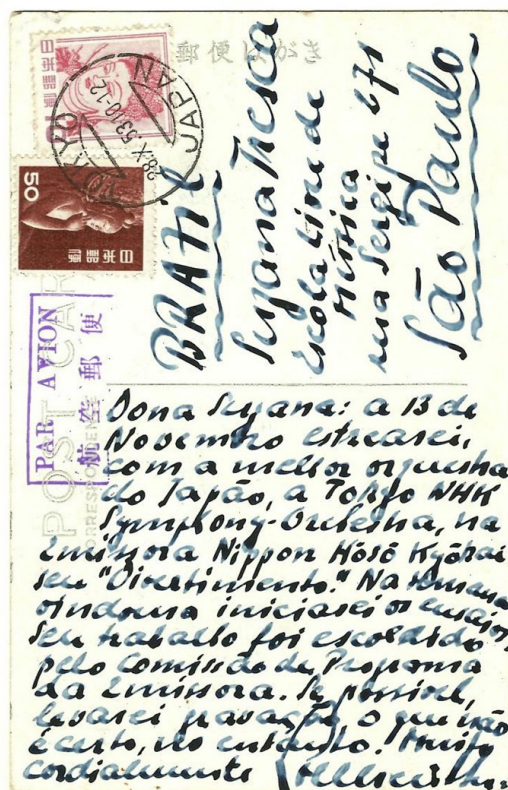 郵便はがき
日本郵便
50
日本郵便
28.X.53.10-12
JAPAN
PAR AVION
航空郵便
POST CARD
CORRESPONDENCE
BRAZIL
Escola Livre de
Música
rua Sergipe 271
São Paulo
Dona : a 13 de
Novembro estrearei,
com a melhor orquestra
do Japão, a Tokyo NHK
Symphony-Orchestra, na
Emissora Nippon Hōsō Kyōkai
seu "Divertimento." Na semana
vindoura iniciarei os ensaios
Seu trabalho foi escolhido
pelo Comissão de Programa
da Emissora. Se possível,
levarei gravação o que não
é certo, no entanto. Muito
cordialmente